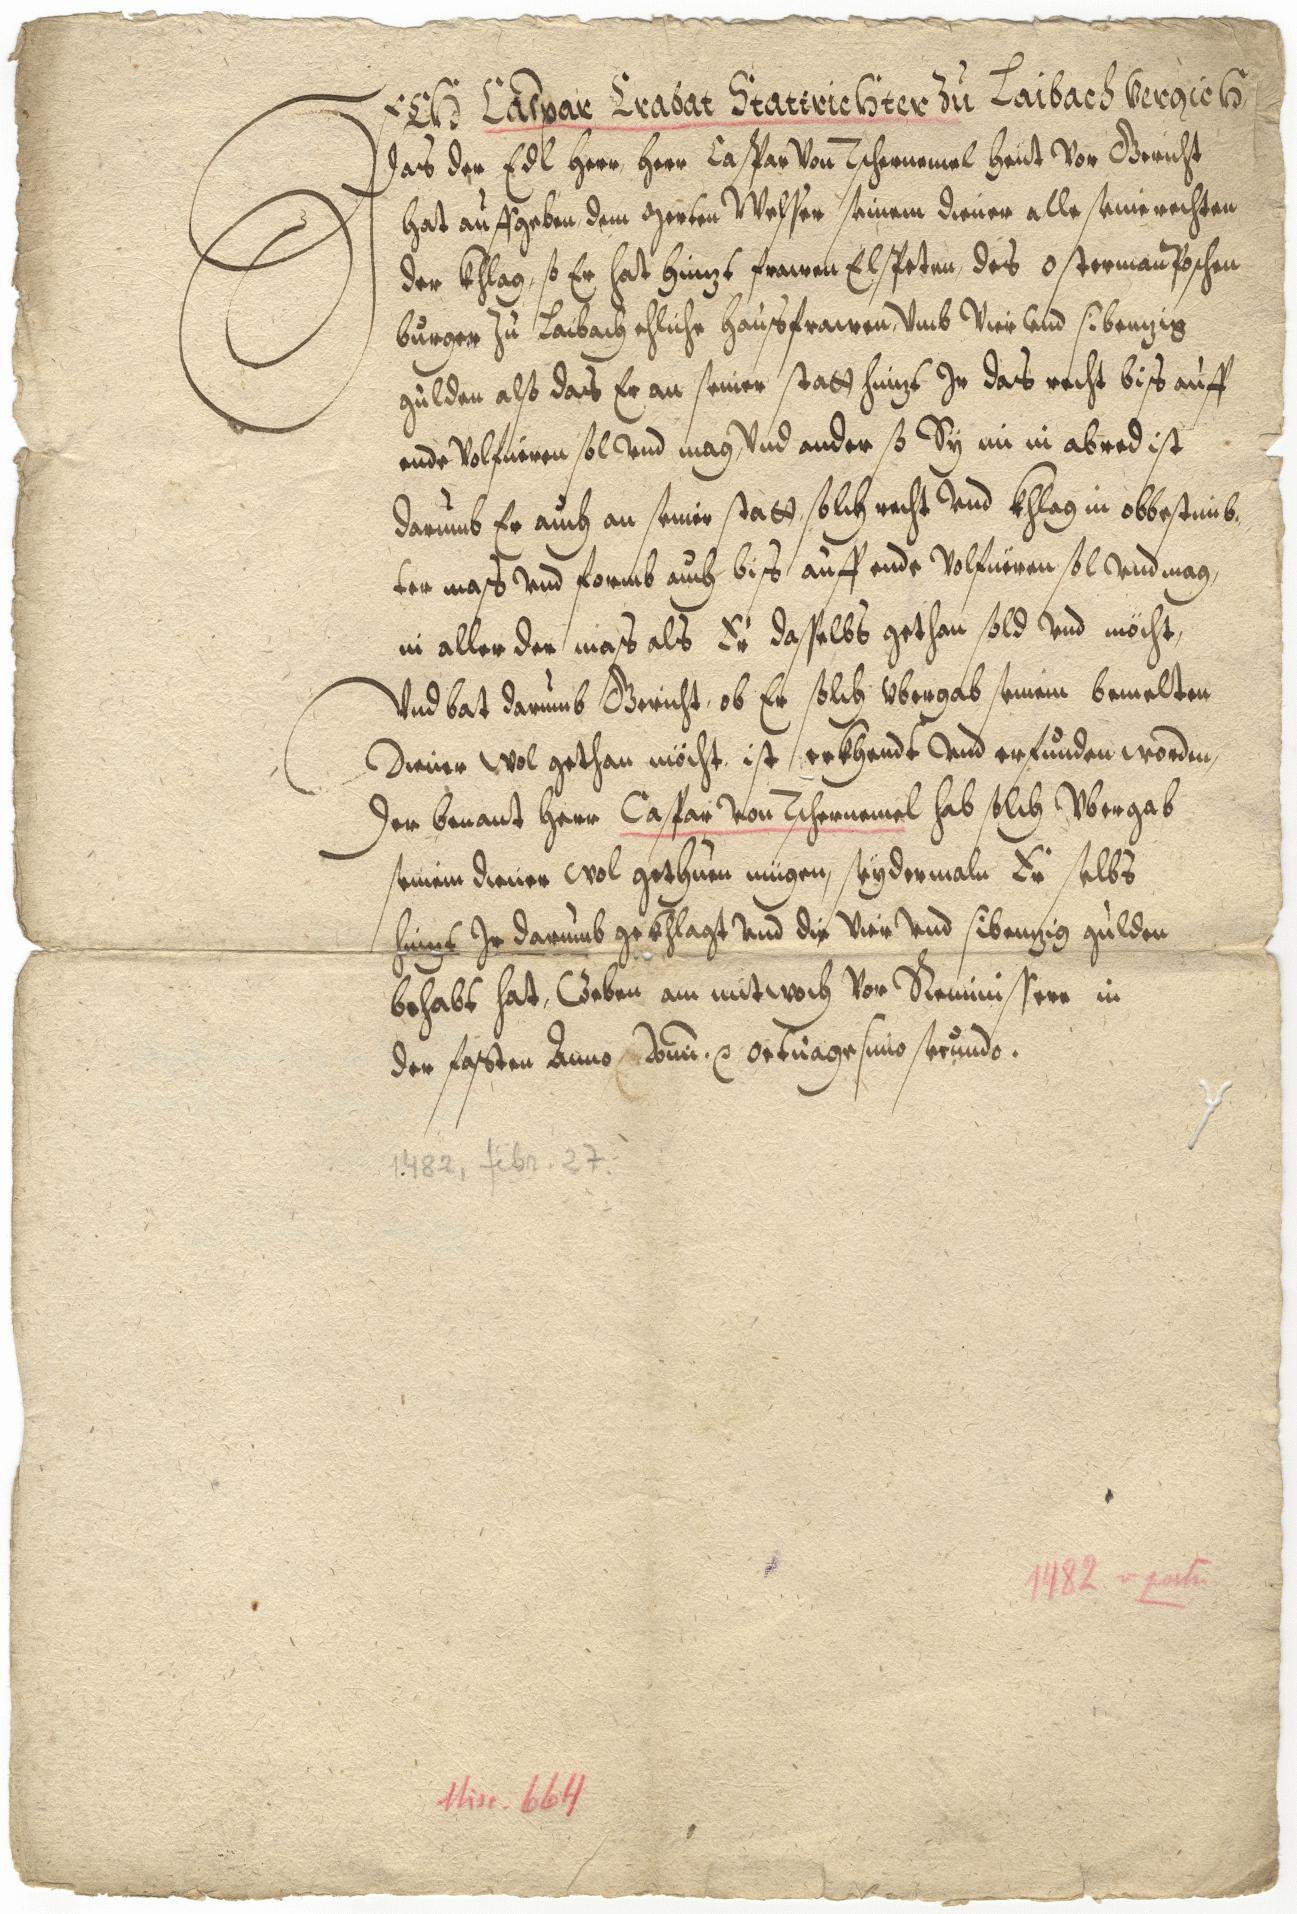 ICH Caspar Crabat Stattrichter zu Laibach Vergich
das der Edl Herr, Herr Caspar von Tschernemel heut vor Gericht
hat auffgeben dem Wesser seinem diener alle seine rechten
der khlag, so Er hat hintzt frawen Elspeten, des Osterman
burger zu Laibach ehliche hausfrawen, vmb vier vnd sibenzig
gulden also das Er an seiner statt hintzt Ir das recht biss auff
ende volfueren sol vnd mag, Vnd ander so Sy im in abred ist
darumb Er auch an seiner statt, solch recht vnd khlag in obbestimb-
ter mass vnd formb auch biss auff ende volfüeren sol vnd mag,
in aller der mass als Er dasselbs gethan sold vnd möcht,
Vnd bat darumb Gericht, ob Er solch vbergab seinem bemelten
Diener wol gethan möcht, ist erkhendt vnd erfunden worden,
Der benant Herr Caspar von Tschernemel hab solch Vbergab
seinem diener wol gethuen mügen, seydermaln Er selbs
hintzt Ir darumb gekhlagt vnd die vier vnd sibenzig gulden
behabt hat, Geben am mitwoch vor Reminissere in
der fassten Anno Domi. octuagesimo secundo.
1482, febr. 27.
1482
Misc. 664